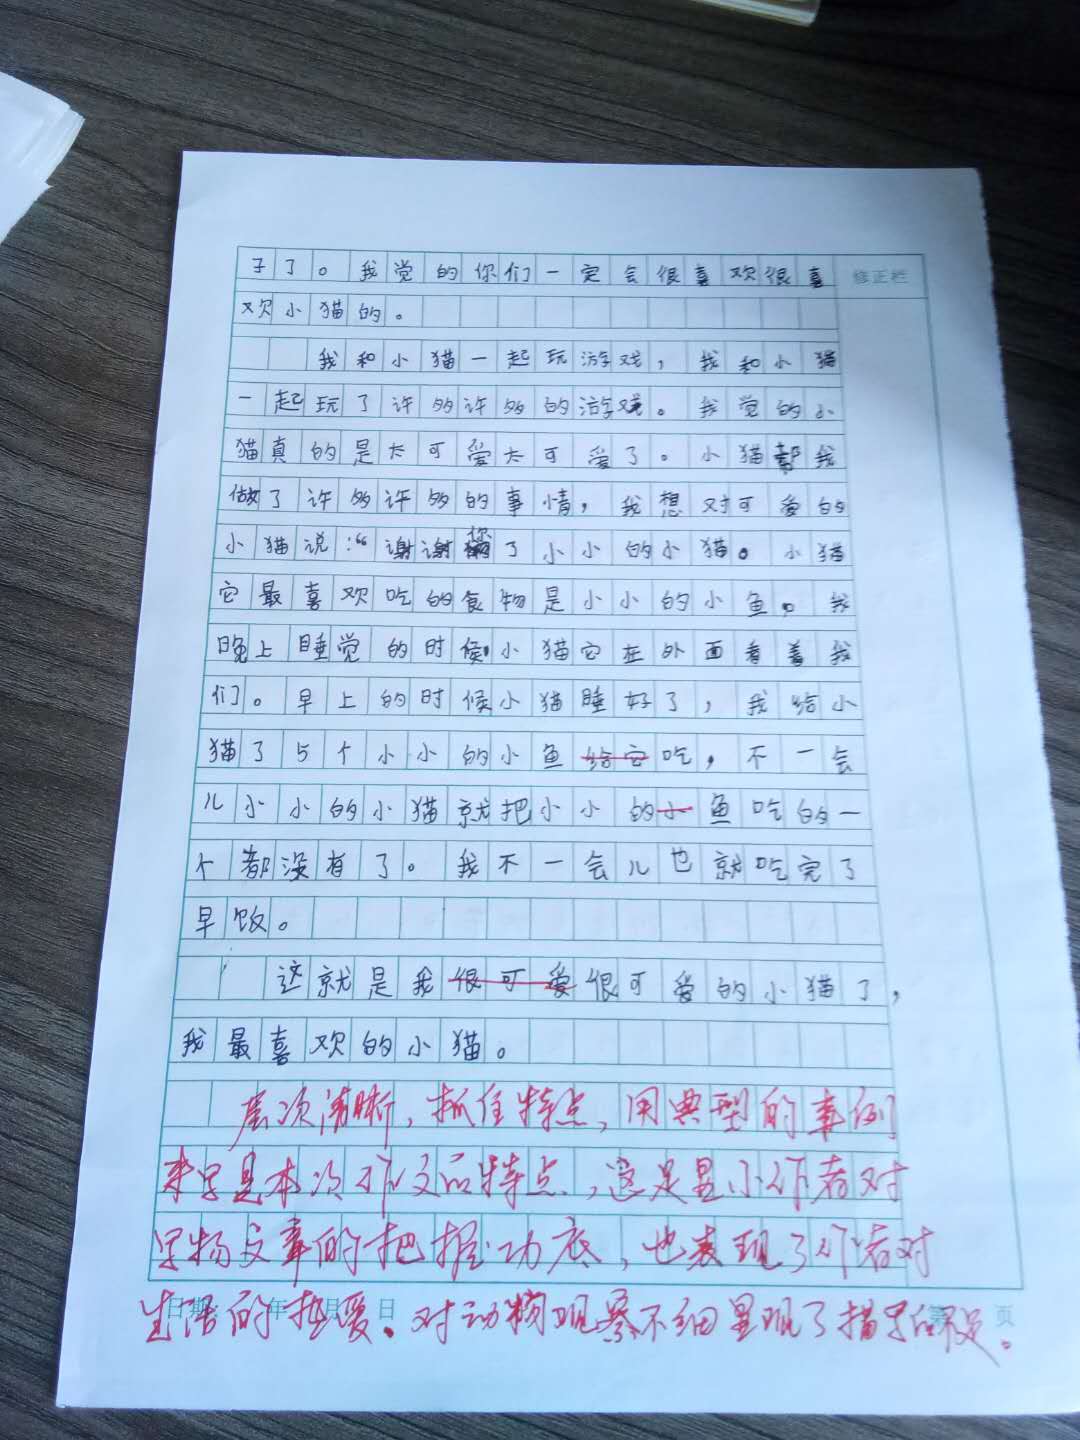 子了。我觉的你们一定会很喜欢很喜
修正栏
欢小猫的。
我和小猫一起玩游戏，我和小猫
一起玩了许多许多的游戏。我觉的小
猫真的是太可爱太可爱了。小猫都我
做了许多许多的事情，我想对可爱的
小猫说：“谢谢你了小小的小猫。小猫
它最喜欢吃的食物是小小的小鱼。我
晚上睡觉的时候小猫它在外面看着我
们。早上的时候小猫睡好了，我给小
猫了5个小小的小鱼给它吃，不一会
儿小小的小猫就把小小的小鱼吃的一
个都没有了。我不一会儿也就吃完了
早饭。
这就是我很可爱很可爱的小猫了，
我最喜欢的小猫。
层次清晰，抓住特点，用典型的事例
来写是本次作文的特点，这是显小作者对
写物文章的把握功底，也表现了作者对
生活的热爱。对动物观察不细呈现了描写的不足。
日期 年 月 日
第 页